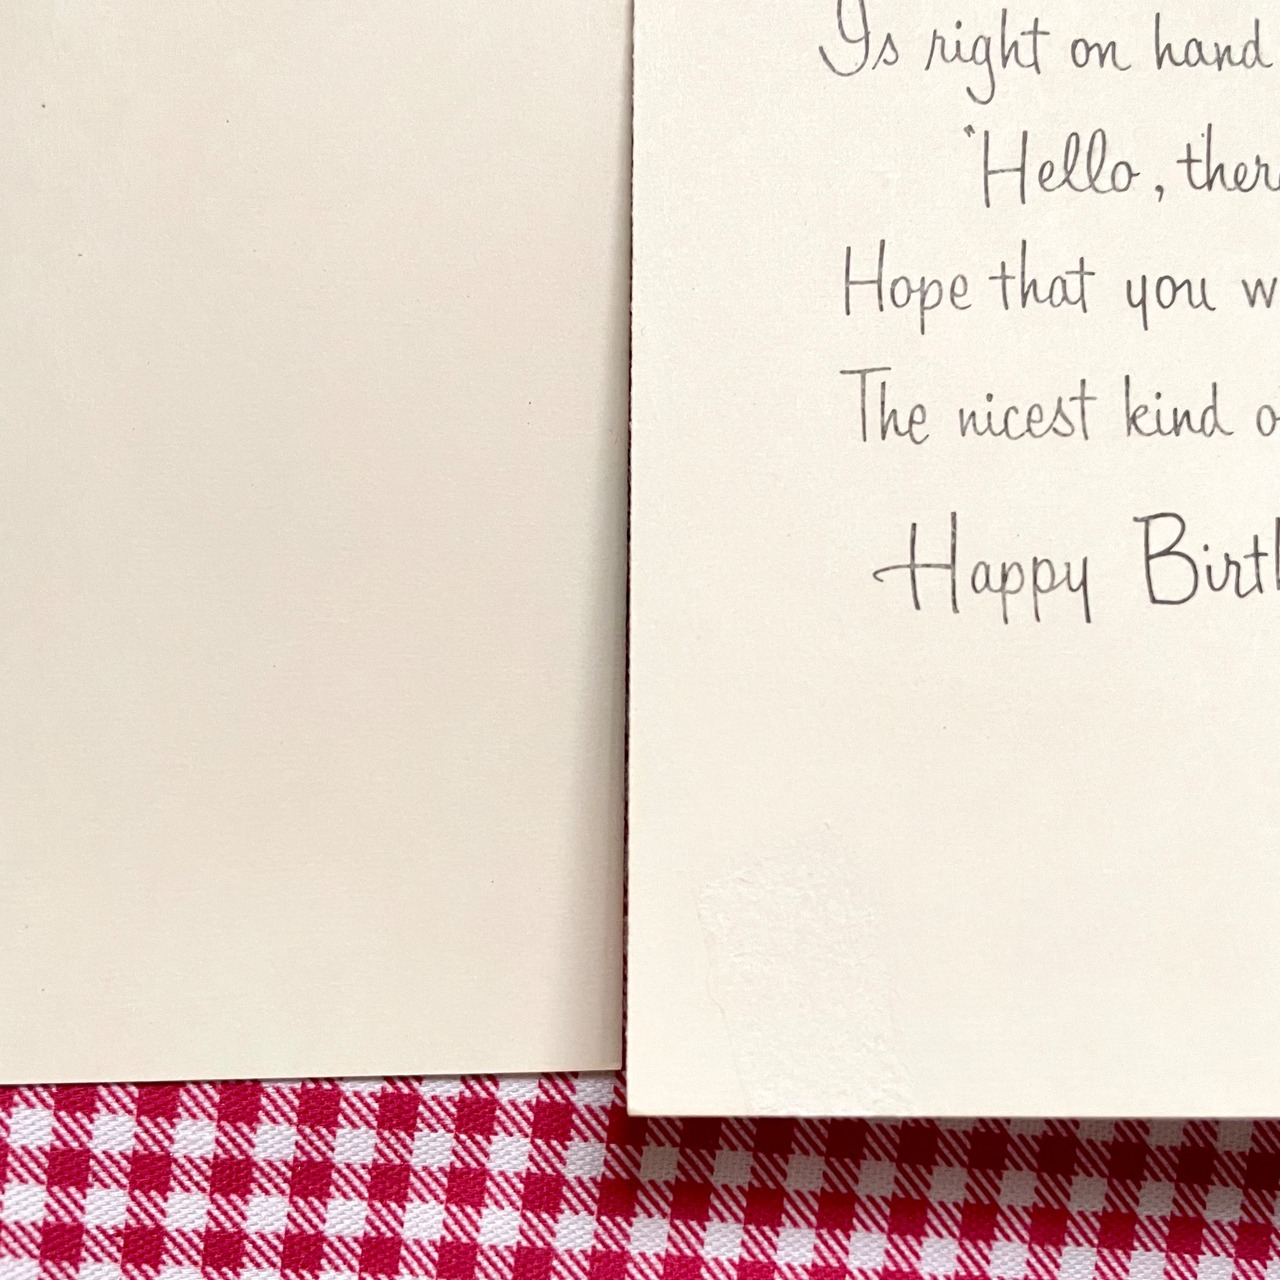 Is right on hand
"Hello, there
Hope that you w
The nicest kind o
Happy Birth